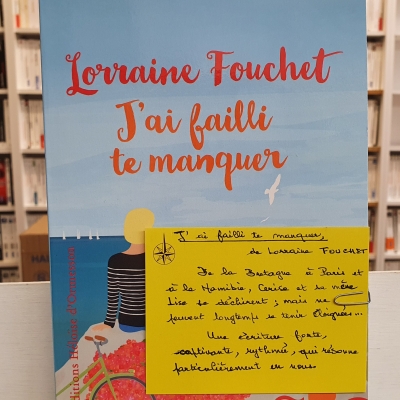 Lorraine Fouchet
J'ai failli
te manquer
Éditions Héloïse d'Ormesson
J'ai failli te manquer,
de Lorraine FOUCHET
De la Bretagne à Paris et
à la Namibie, Cerise et sa mère
Lise se déchirent ; mais ne
peuvent longtemps se tenir éloignées...
Une écriture forte,
captivante, rythmée, qui résonne
particulièrement en nous.